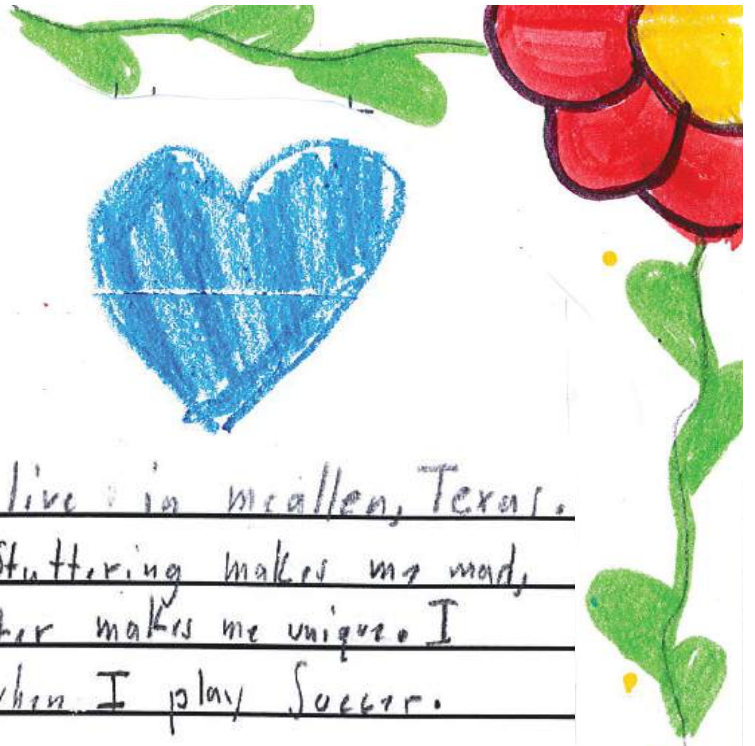 live in mcallen, Texas.
Stuttering makes me mad,
makes me unique. I
when I play Soccer.